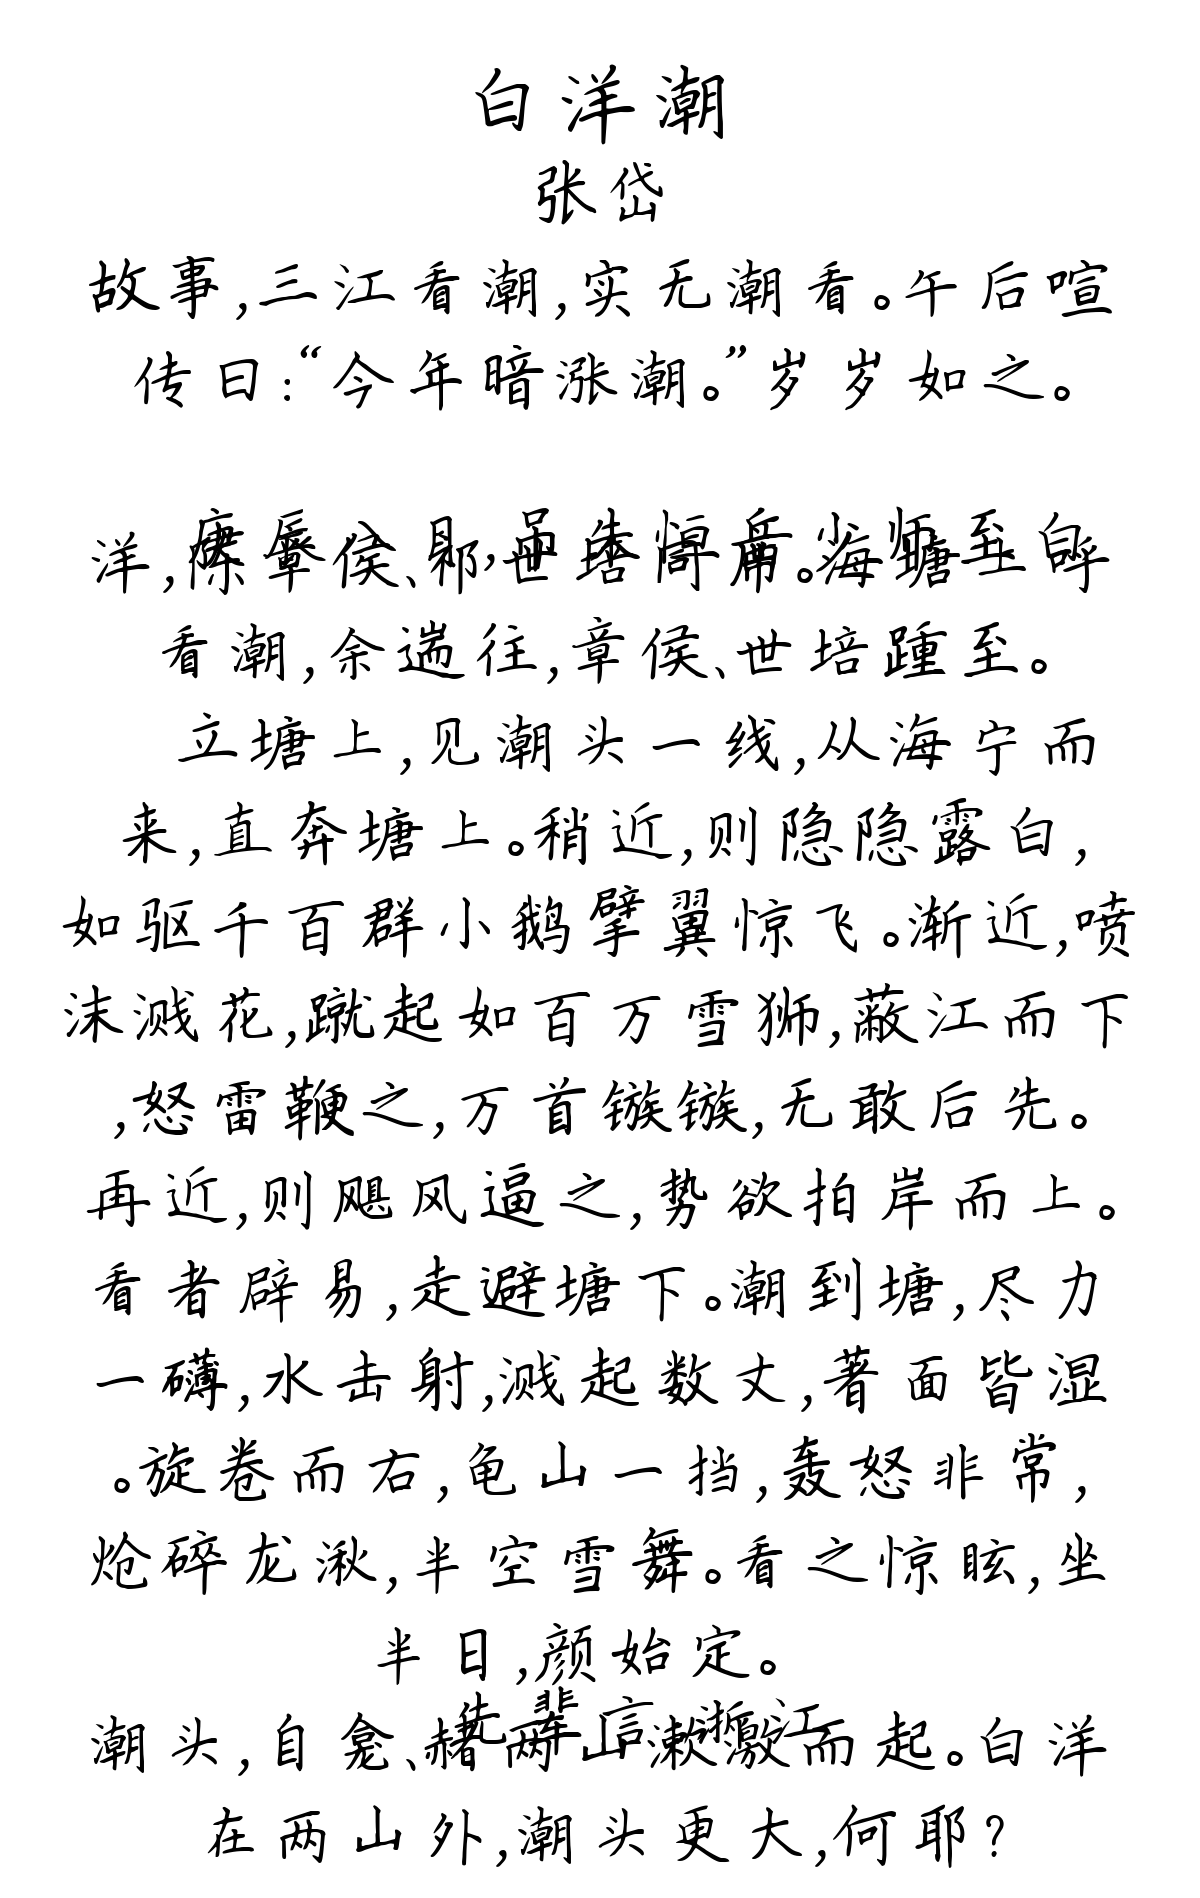 白洋潮
张岱
故事,三江看潮,实无潮看。午后喧
传曰:“今年暗涨潮。”岁岁如之。
庚辰八月,吊朱恒岳少师至白
洋,陈章侯、祁世培同席。海塘上呼
看潮,余遄往,章侯、世培踵至。
立塘上,见潮头一线,从海宁而
来,直奔塘上。稍近,则隐隐露白,
如驱千百群小鹅擘翼惊飞。渐近,喷
沫溅花,蹴起如百万雪狮,蔽江而下
,怒雷鞭之,万首镞镞,无敢后先。
再近,则飓风逼之,势欲拍岸而上。
看者辟易,走避塘下。潮到塘,尽力
一礴,水击射,溅起数丈,著面皆湿
。旋卷而右,龟山一挡,轰怒非常,
炝碎龙湫,半空雪舞。看之惊眩,坐
半日,颜始定。
先辈言浙江
潮头,自龛、赭两山漱激而起。白洋
在两山外,潮头更大,何耶?